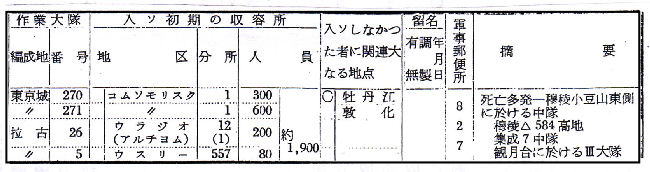 作業大隊 入ソ初期の収容所 入ソしなかつた者に関連大なる地点 留名 有調年月 無製日 軍事郵便所 摘要
編成地 番号 地区 分所 人員
東京城 270 コムソモリスク 1 300 〇 牡丹江 8 死亡多発一穆稜小豆山東側
〃 271 〃 1 600 敦化 に於ける中隊
拉古 26 ウラジオ 12 200 約 2 穆稜△584高地
(アルチヨム) (1) 1,900 集成7中隊
〃 5 ウスリー 557 80 7 観月台に於けるⅢ大隊